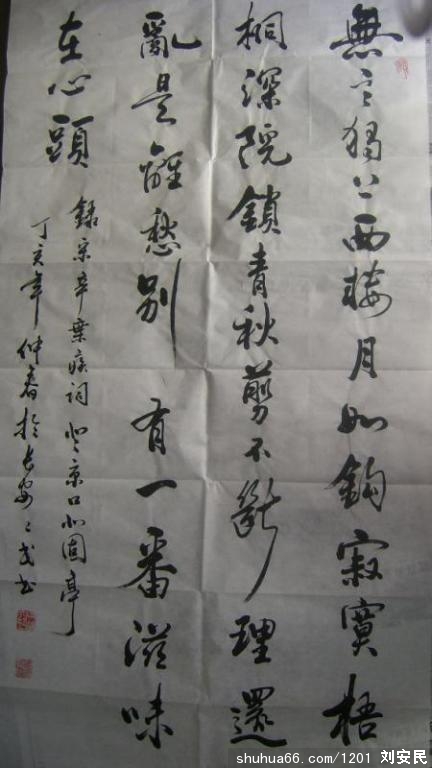 無言獨上西樓月如鈎寂寞梧
桐深院鎖青秋剪不斷理還
亂是離愁別有一番滋味
在心頭
錄宋辛棄疾詞登京口北固亭
丁亥年仲春於長安〻民书
shuhua66.com/1201 刘安民